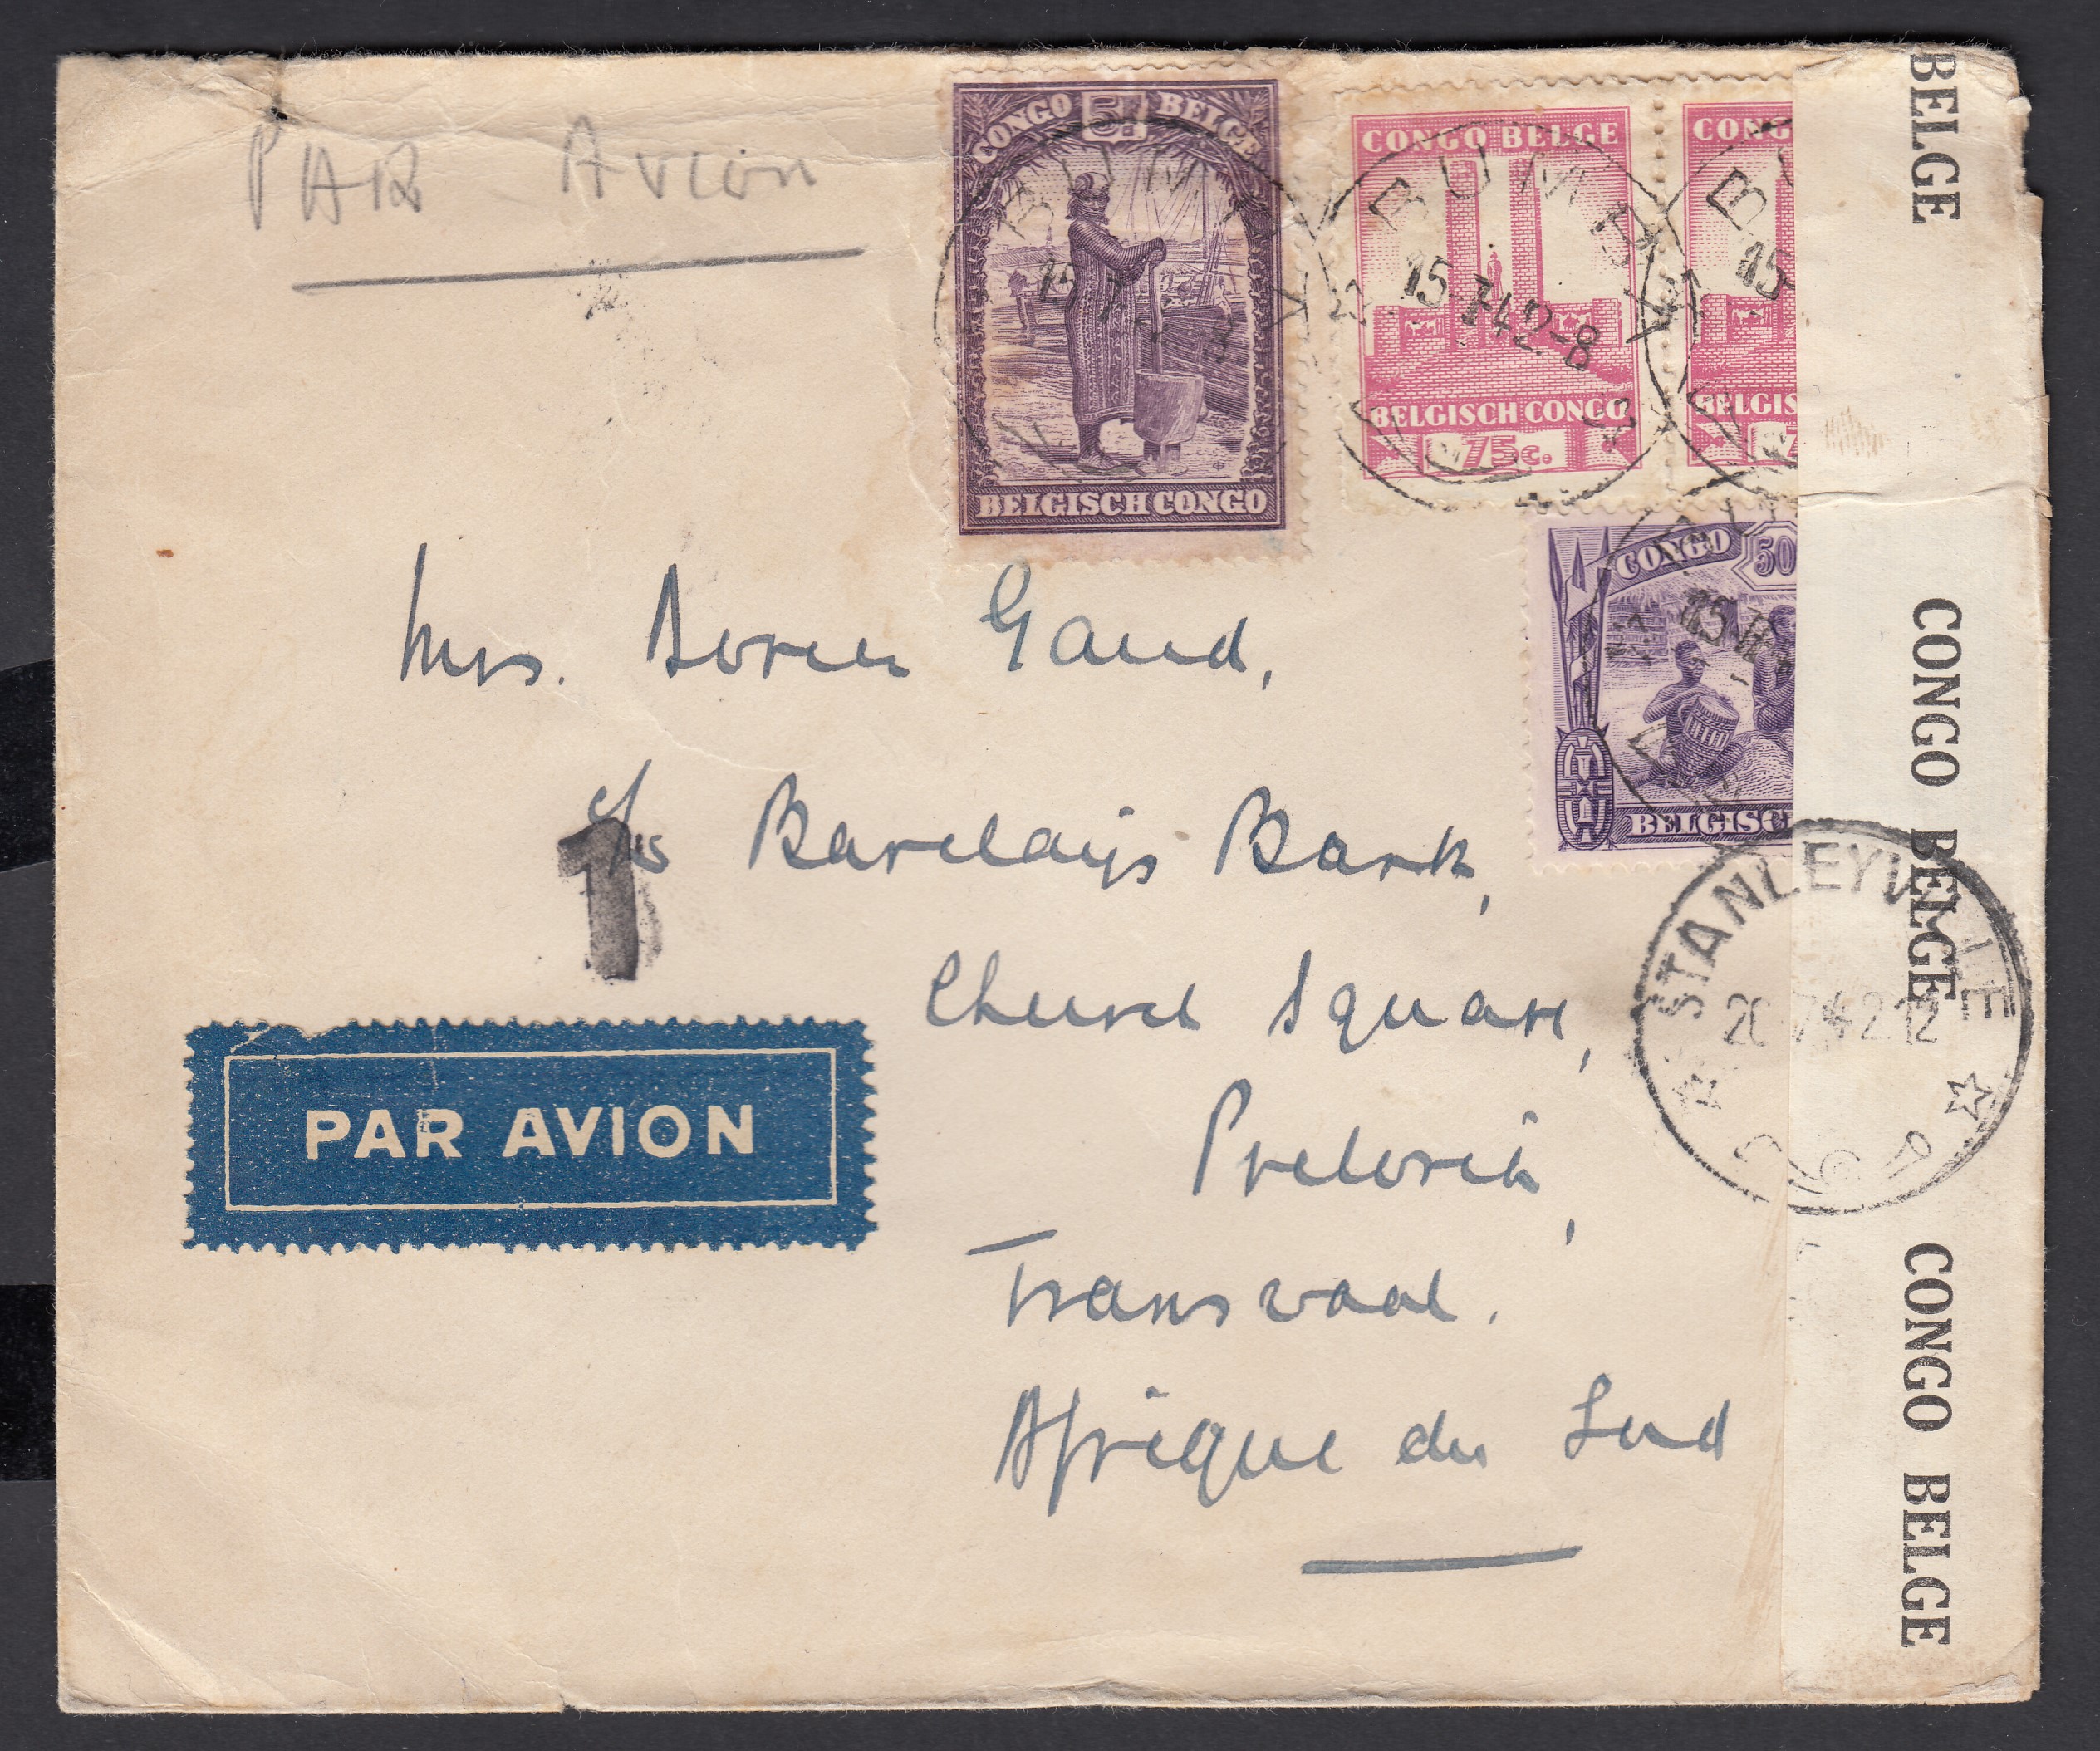 PAR Avion
CONGO 5F BELGE
BELGISCH CONGO
BUMBA
15
CONGO BELGE
BELGISCH CONGO
75c.
BUMBA
15-7-42-8
CONG
BELGIS
7
BU
15
CONGO 50
BELGISC
15
Mrs. Doreen Gaud,
c/o Barclays Bank,
Church Square,
Pretoria,
Transvaal.
Afrique du Sud
1
PAR AVION
STANLEYVILLE
20-7-42.12
BELGE
CONGO BELGE
CONGO BELGE